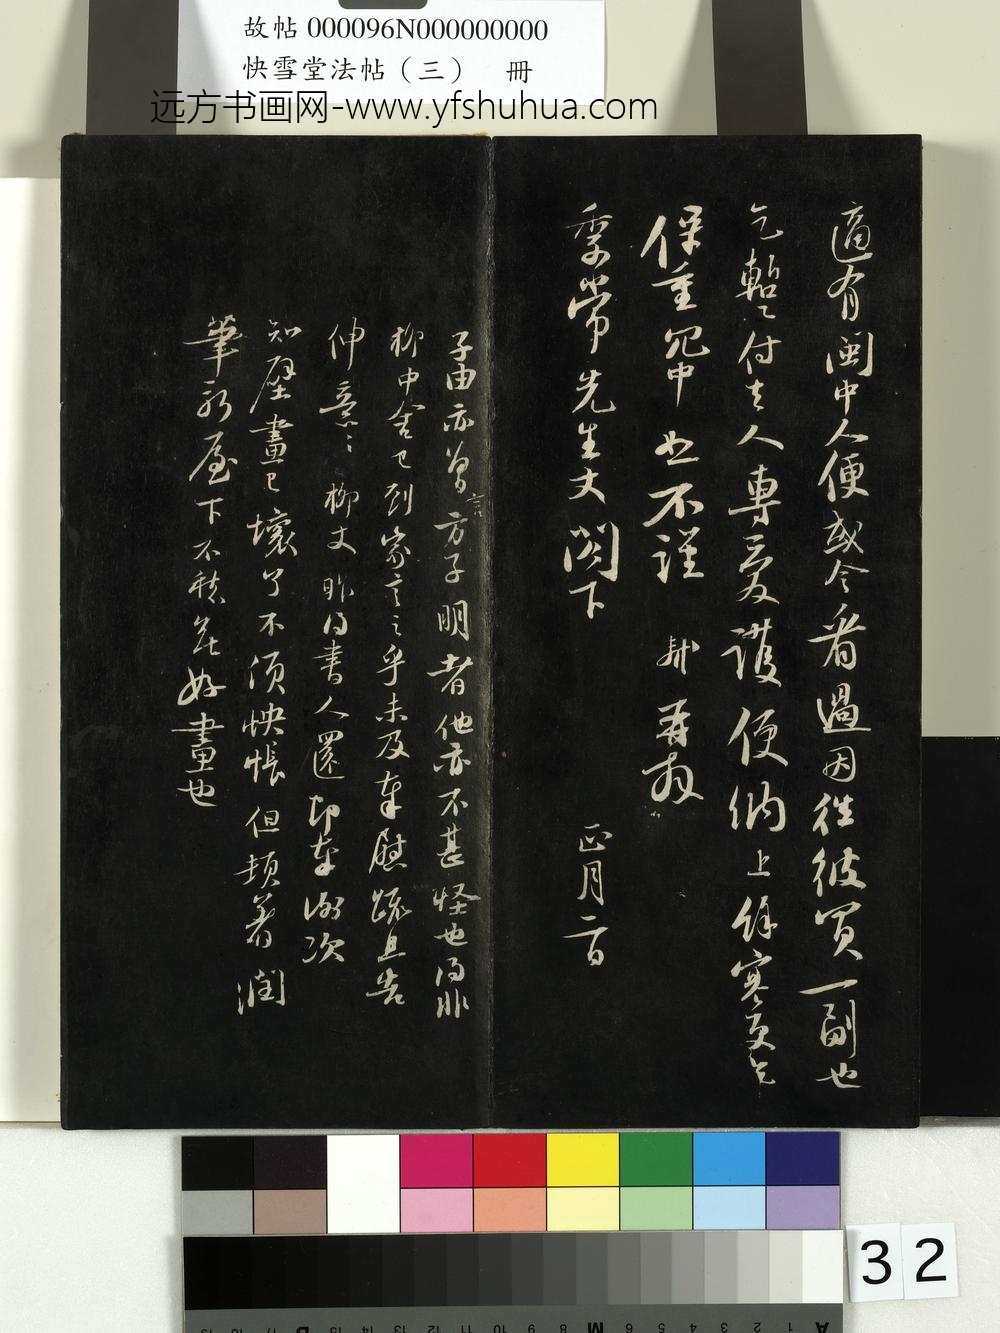 故帖 000096N000000000
快雪堂法帖（三） 冊
远方书画网-www.yfshuhua.com
適有閩中人便或令看過因往彼買一副也
乞暫付去人專愛護便納上餘寒更乞
保重冗中恕不謹 軾再拜
季常先生丈閣下 正月二日
子由亦曾言方子明者他亦不甚怪也得非
柳中舍已到家言之乎未及奉慰疏且告
伸意〻柳丈昨得書人還即奉謝次
知壁畫已壞了不須怏悵但頓著潤
筆新屋下不愁無好畫也
32